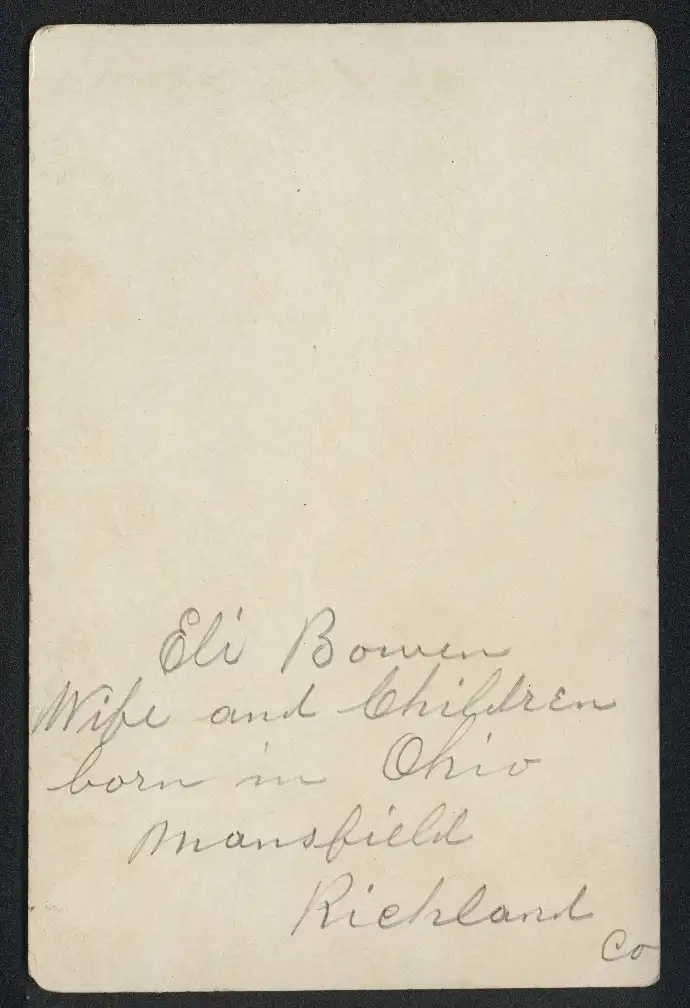 Eli Bowen
Wife and Children
born in Ohio
Mansfield
Richland
Co